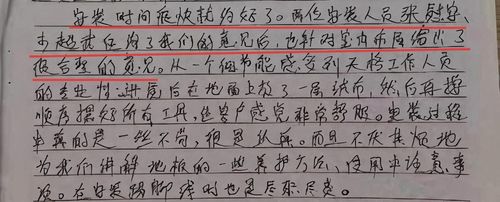 安装时间很快就约好了。两位安装人员张慰宇、
李超武征询了我们的意见后,也针对室内布局给出了
很合理的意见。从一个细节能感受到天格工作人员
的专业性,进屋后在地面上放了一层绒布,然后再按
顺序摆好所有工具,让客户感觉非常舒服。安装过程
中真的是一丝不苟,很是认真。而且不厌其烦地
为我们讲解地板的一些养护方法、使用中注意事
项。在安装踢脚线时也是尽职尽责。